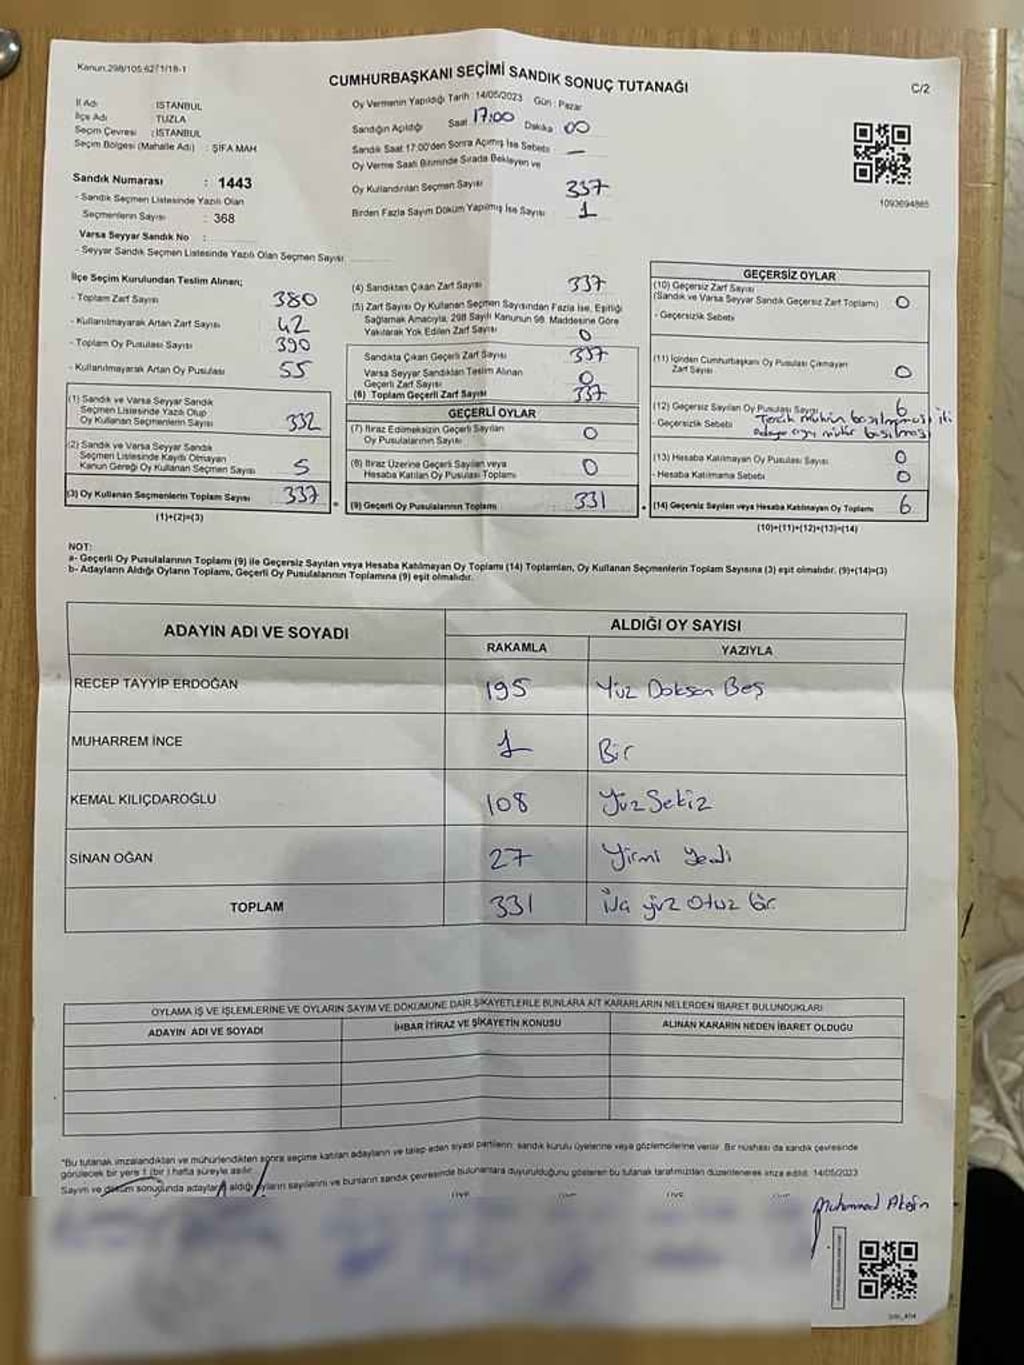 Kanun.298/105.62/1/18-1
CUMHURBAŞKANI SEÇİMİ SANDIK SONUÇ TUTANAĞI
C/2
İl Adı : İSTANBUL
İlçe Adı : TUZLA
Seçim Çevresi : İSTANBUL
Seçim Bölgesi (Mahalle Adı) : ŞİFA MAH
Sandık Numarası : 1443
- Sandık Seçmen Listesinde Yazılı Olan
Seçmenlerin Sayısı : 368
Varsa Seyyar Sandık No :
- Seyyar Sandık Seçmen Listesinde Yazılı Olan Seçmen Sayısı:
Oy Vermenin Yapıldığı Tarih : 14/05/2023 Gün : Pazar
Sandığın Açıldığı Saat 17:00 Dakika : 00
Sandık Saat 17:00'den Sonra Açımış İse Sebebi : —
Oy Verme Saati Bitiminde Sırada Bekleyen ve
Oy Kullandırılan Seçmen Sayısı 337
Birden Fazla Sayım Döküm Yapılmış İse Sayısı 1
1093694865
İlçe Seçim Kurulundan Teslim Alınan;
- Toplam Zarf Sayısı 380
- Kullanılmayarak Artan Zarf Sayısı 42
- Toplam Oy Pusulası Sayısı 390
- Kullanılmayarak Artan Oy Pusulası 55
(1) Sandık ve Varsa Seyyar Sandık
Seçmen Listesinde Yazılı Olup
Oy Kullanan Seçmenlerin Sayısı 332
(2) Sandık ve Varsa Seyyar Sandık
Seçmen Listesinde Kayıtlı Olmayan
Kanun Gereği Oy Kullanan Seçmen Sayısı 5
(3) Oy Kullanan Seçmenlerin Toplam Sayısı 337
(1)+(2)=(3)
(4) Sandıktan Çıkan Zarf Sayısı 337
(5) Zarf Sayısı Oy Kullanan Seçmen Sayısından Fazla İse, Eşitliği
Sağlamak Amacıyla, 298 Sayılı Kanunun 98. Maddesine Göre
Yakılarak Yok Edilen Zarf Sayısı 0
Sandıkta Çıkan Geçerli Zarf Sayısı 337
Varsa Seyyar Sandıktan Teslim Alınan
Geçerli Zarf Sayısı 0
(6) Toplam Geçerli Zarf Sayısı 337
GEÇERLİ OYLAR
(7) İtiraz Edilmeksizin Geçerli Sayılan
Oy Pusulalarının Sayısı 0
(8) İtiraz Üzerine Geçerli Sayılan veya
Hesaba Katılan Oy Pusulası Toplamı 0
(9) Geçerli Oy Pusulalarının Toplamı 331
GEÇERSİZ OYLAR
(10) Geçersiz Zarf Sayısı
(Sandık ve Varsa Seyyar Sandık Geçersiz Zarf Toplamı) 0
- Geçersizlik Sebebi
(11) İçinden Cumhurbaşkanı Oy Pusulası Çıkmayan
Zarf Sayısı 0
(12) Geçersiz Sayılan Oy Pusulası Sayısı 6
- Geçersizlik Sebebi Tercih mührün basılmamış iki
adaya aynı mühür basılması
(13) Hesaba Katılmayan Oy Pusulası Sayısı 0
- Hesaba Katılmama Sebebi 0
(14) Geçersiz Sayılan veya Hesaba Katılmayan Oy Toplamı 6
(10)+(11)+(12)+(13)=(14)
NOT:
a- Geçerli Oy Pusulalarının Toplamı (9) ile Geçersiz Sayılan veya Hesaba Katılmayan Oy Toplamı (14) Toplamları, Oy Kullanan Seçmenlerin Toplam Sayısına (3) eşit olmalıdır. (9)+(14)=(3)
b- Adayların Aldığı Oyların Toplamı, Geçerli Oy Pusulalarının Toplamına (9) eşit olmalıdır.
ADAYIN ADI VE SOYADI ALDIĞI OY SAYISI
RAKAMLA YAZIYLA
RECEP TAYYİP ERDOĞAN 195 Yüz Doksan Beş
MUHARREM İNCE 1 Bir
KEMAL KILIÇDAROĞLU 108 Yüz Sekiz
SİNAN OĞAN 27 Yirmi yedi
TOPLAM 331 Üç yüz Otuz bir
OYLAMA İŞ VE İŞLEMLERİNE VE OYLARIN SAYIM VE DÖKÜMÜNE DAİR ŞİKAYETLERLE BUNLARA AİT KARARLARIN NELERDEN İBARET BULUNDUKLARI
ADAYIN ADI VE SOYADI İHBAR İTİRAZ VE ŞİKAYETİN KONUSU ALINAN KARARIN NEDEN İBARET OLDUĞU
*Bu tutanak imzalandıktan ve mühürlendikten sonra seçime katılan adayların ve talep eden siyasi partilerin sandık kurulu üyelerine veya gözlemcilerine verilir. Bir nüshası da sandık çevresinde
görülecek bir yere 1 (bir) hafta süreyle asılır.
Sayım ve döküm sonucunda adayların aldığı oyların sayılarını ve bunların sandık çevresinde bulunanlara duyurulduğunu gösteren bu tutanak tarafımızdan düzenlenerek imza edildi. 14/05/2023
Muhammed Akgin